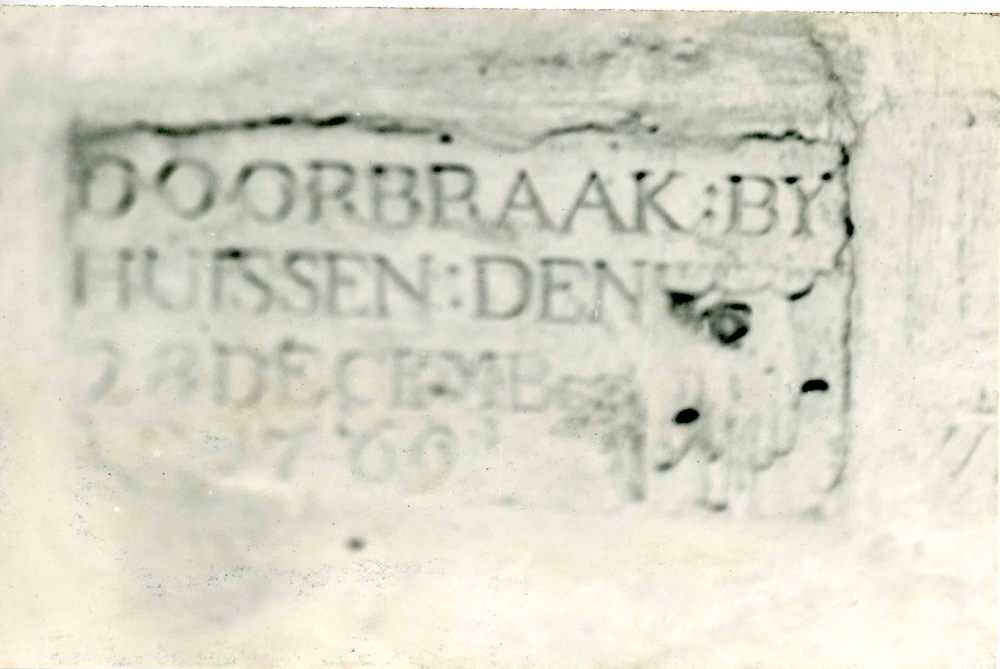 DOORBRAAK : BY
HUISSEN : DEN
28 DECEMBer
1760